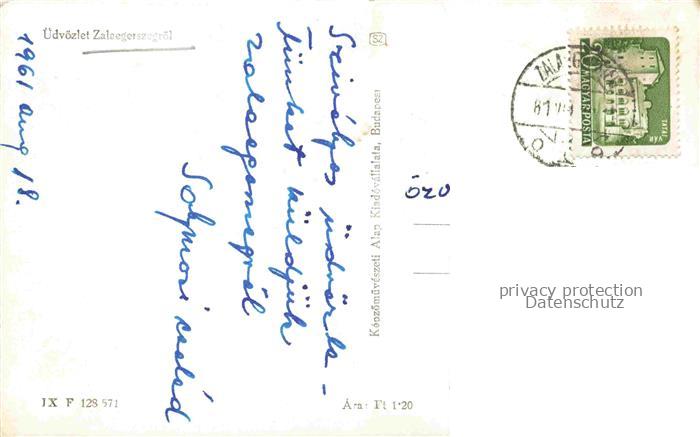 Üdvözlet Zalaegerszegről
1961 aug 18.
Szívélyes üdvözle-
tünket küldjük
Zalaegerszegről
Solymosi család
Képzőművészeti Alap Kiadóvállalata, Budapest
IX F 128 571
Ára: Ft 1·20
ÓZD
20
MAGYAR POSTA
TATAI VÁR
privacy protection
Datenschutz